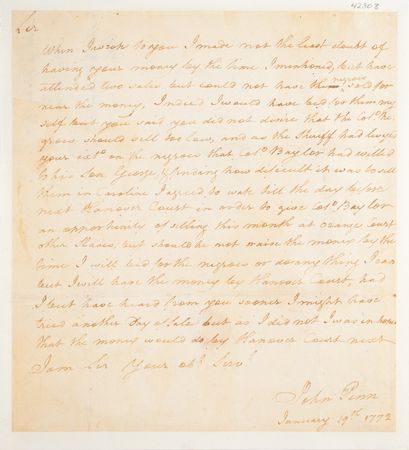 42308
Sir
When I wrote to you I made not the least doubt of
having your money by the time I mentioned, but have
attended two sales but could not have the negroes sold for
near the money, Indeed I would have bid for them my
self but you said you did not desire that the Colo. Ne
groes should sell too low, and as the Sheriff had levyed
your on the negroes that Colo. Baylor had willed
to his Son George, & finding how difficult it was to sell
them in Caroline I agreed to wait till the day before
next Hanover Court in order to give Colo. Baylor
an opportunity of selling this month at orange Court
other Slaves, but should he not raise the money by the
time I will bid for the negroes or do any thing I can
but I will have the money by Hanover Court, had
I but have heard from you sooner I might have
tried another Day of Sale but as I did not I was in hopes
that the money would do by Hanover Court next
I am Sir Your obt. Servt.
John Penn
January 19th 1772